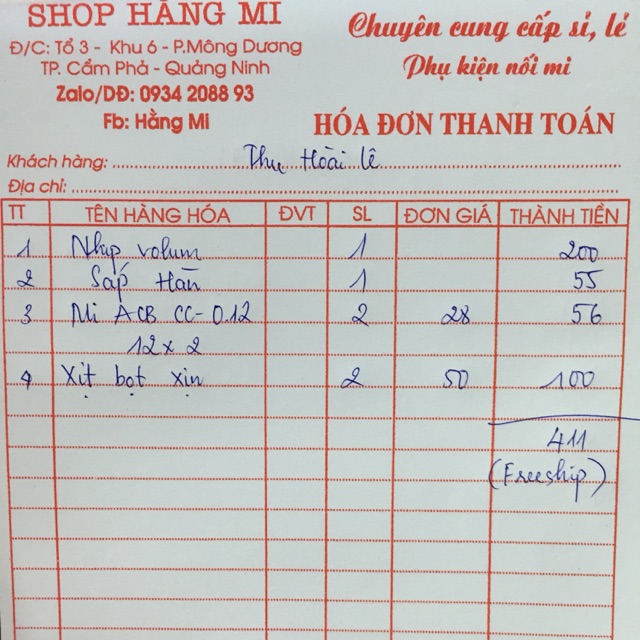 SHOP HẰNG MI
Đ/C: Tổ 3 - Khu 6 - P.Mông Dương
TP. Cẩm Phả - Quảng Ninh
Zalo/DĐ: 0934 2088 93
Fb: Hằng Mi
Chuyên cung cấp sỉ, lẻ
Phụ kiện nối mi
HÓA ĐƠN THANH TOÁN
Khách hàng: Thu Hoài Lê
Địa chỉ:
TT TÊN HÀNG HÓA ĐVT SL ĐƠN GIÁ THÀNH TIỀN
1 Nhíp volum 1 200
2 Sáp Hàn 1 55
3 Mi ACB CC-0.12 2 28 56
12x2
4 Xịt bọt xịn 2 50 100
411
(Freeship)